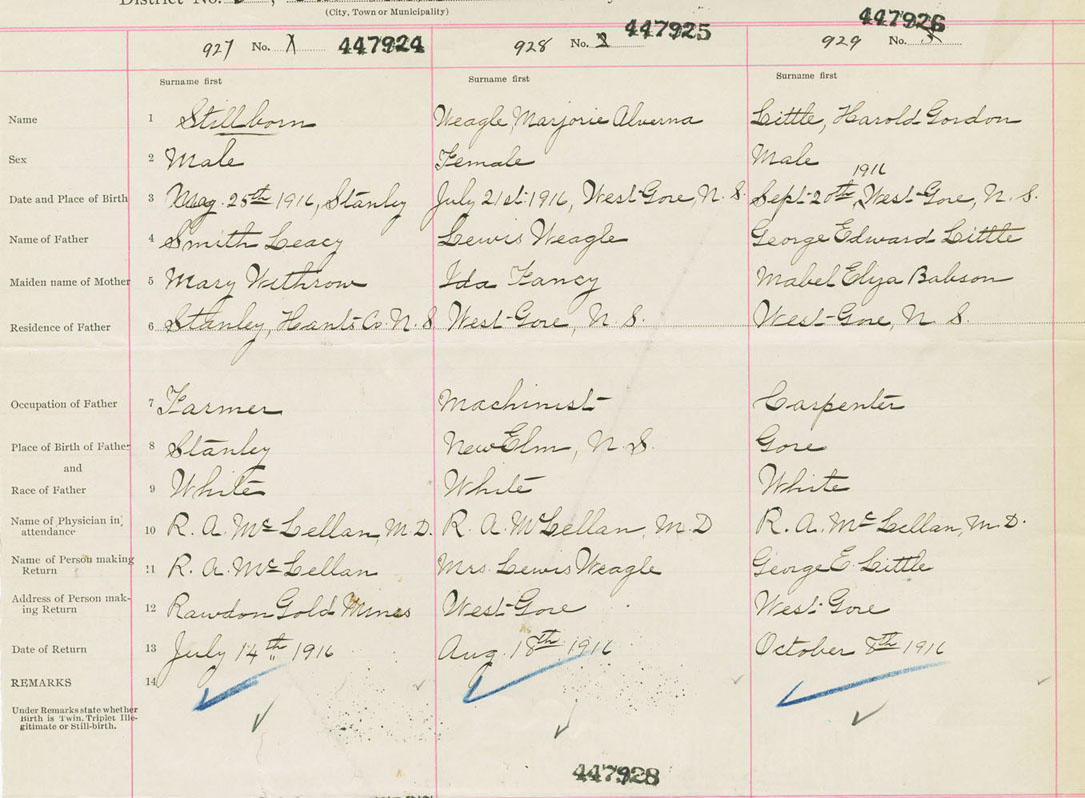 District No.
(City, Town or Municipality)
927 No. 447924 928 No. 447925 929 No. 447926
Surname first Surname first Surname first
Name 1 Stillborn Weagle, Marjorie Alverna Little, Harold Gordon
Sex 2 Male Female Male
1916
Date and Place of Birth 3 May. 25th 1916, Stanley July 21st 1916, West-Gore, N. S. Sept 20th, West-Gore, N. S.
Name of Father 4 Smith Leacy Lewis Weagle George Edward Little
Maiden name of Mother 5 Mary Withrow Ida Fancy Mabel Eliza Babson
Residence of Father 6 Stanley, Hants Co. N. S West-Gore, N. S. West-Gore, N. S.
Occupation of Father 7 Farmer Machinist Carpenter
Place of Birth of Father 8 Stanley New Elm, N. S. Gore
and
Race of Father 9 White White White
Name of Physician in attendance 10 R. A. McLellan, M. D. R. A. McLellan, M. D R. A. McLellan, M. D.
Name of Person making Return 11 R. A. McLellan Mrs. Lewis Weagle George E. Little
Address of Person making Return 12 Rawdon Gold Mines West-Gore West-Gore
Date of Return 13 July 14th 1916 Aug. 18th 1916 October 8th 1916
REMARKS 14
Under Remarks state whether
Birth is Twin, Triplet Ille-
gitimate or Still-birth.
447928